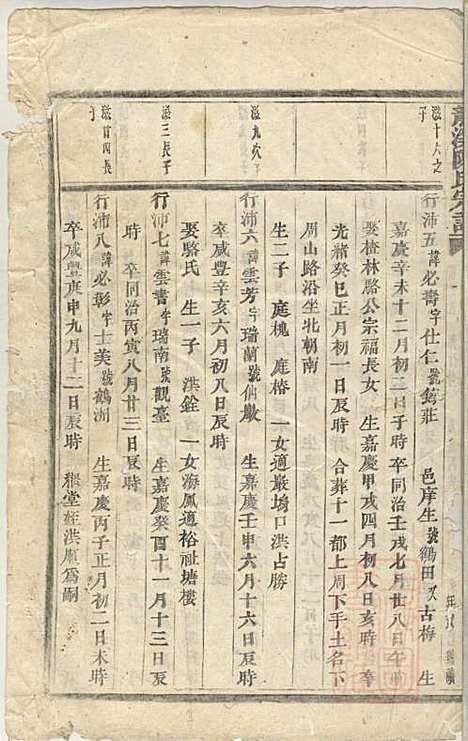 滋十六之子
行沛五諱必壽字仕仁號鏡莊 邑庠生號鶴田又古梅 生
嘉慶辛未十二月初二日子時卒同治壬戌七月廿八日午
娶椿林路公宗福長女 生嘉慶甲戌四月初八日亥時 卒
光緒癸巳正月初一日辰時 合葬十一都上周下手土名下
周山路沿坐北朝南
生二子 庭槐 庭椿 一女適巖塢口洪占勝
滋九次子
行沛六諱雲芳字瑞蘭號仙巖 生嘉慶壬申六月十六日辰時
卒咸豐辛亥六月初八日辰時
娶駱氏 生一子 洪銓 一女海鳳適裕祉塘樓
滋三長子
行沛七諱雲書字瑞南號觀臺 生嘉慶癸酉十一月十三日辰
時 卒同治丙寅八月廿三日辰時
滋廿四長子
行沛八諱必彰字士美號鶴洲 生嘉慶丙子正月初二日未時
卒咸豐庚申九月十二日辰時 繼堂姪洪順為嗣